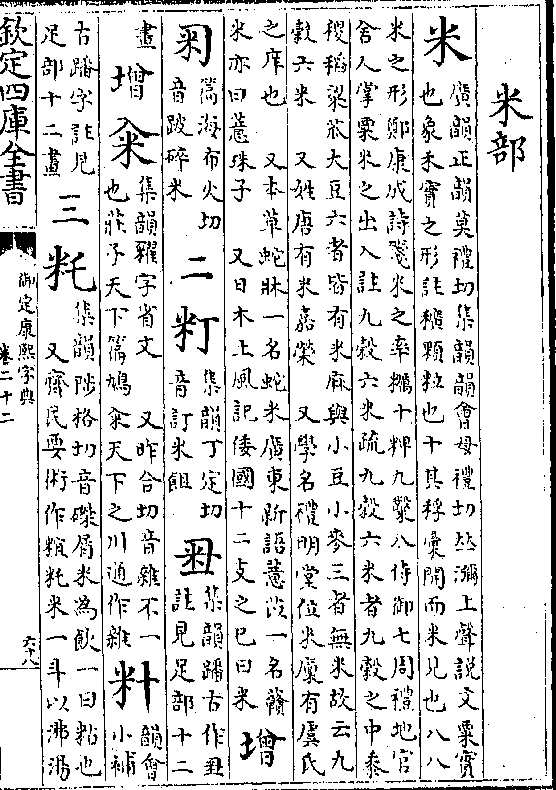 米部
米 廣韻正韻莫禮切集韻韻會母禮切𠀤瀰上聲說文粟實
也象禾實之形註穬顆粒也十其稃彙開而米見也八八
米之形鄭康成詩箋米之率糲十粺九鑿八侍御七周禮地官
舍人掌粟米之出入註九穀六米疏九穀六米者九穀之中黍
稷稻粱苽大豆六者皆有米麻與小豆小麥三者無米故云九
穀六米　又姓唐有米嘉榮　又學名禮明堂位米廩有虞氏
之庠也　又本草蛇牀一名蛇米廣東新語薏苡一名贛
米亦曰薏珠子　又日本土風記倭國十二支之巳曰米
增
篇海布火切
音跛碎米
二
集韻丁定切
音訂米餖
集韻蹯古作
註見足部十二
畫
增 籴 集韻糴字省文　又昨合切音雜不一
也莊子天下篇鳩籴天下之川通作雜
籵 韻會
小補
古蹯字註見
足部十二畫
三 粍 集韻陟格切音磔屑米為飲一曰粘也
又齊民要術作粍米一斗以沸湯
欽定四庫全書
御定康熙字典
卷二十二
六十八